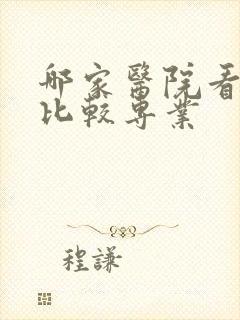 哪家醫院看
比較專業
程謙